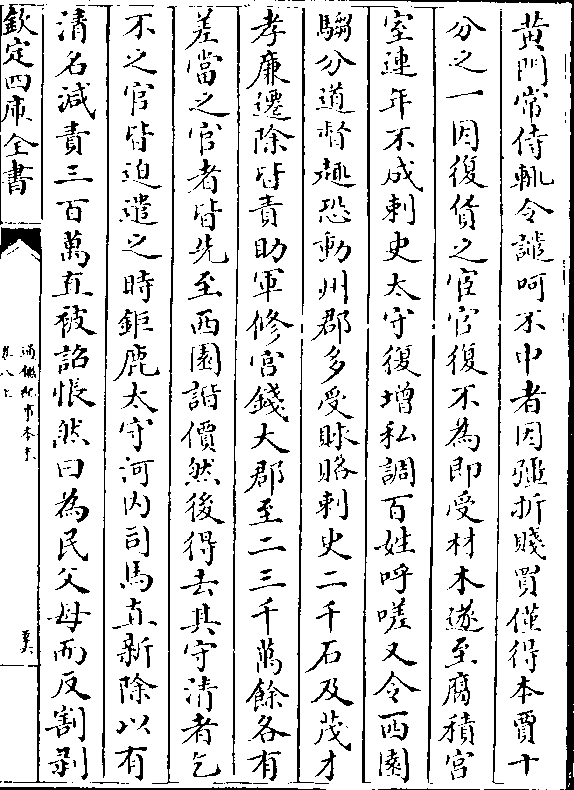 黄門常侍輒令譴呵不中者因彊折賤買僅得本賈十
分之一因復貨之宦官復不為即受材木遂至腐積宮
室連年不成刺史太守復增私調百姓呼嗟又令西園
騶分道督趣恐動州郡多受賕賂刺史二千石及茂才
孝廉遷除皆責助軍修宮錢大郡至二三千萬餘各有
差當之官者皆先至西園諧價然後得去其守清者乞
不之官皆迫遣之時鉅鹿太守河内司馬直新除以有
清名減責三百萬直被詔悵然曰為民父母而反割剥
欽定四庫全書
通鑑紀事本末
卷八上